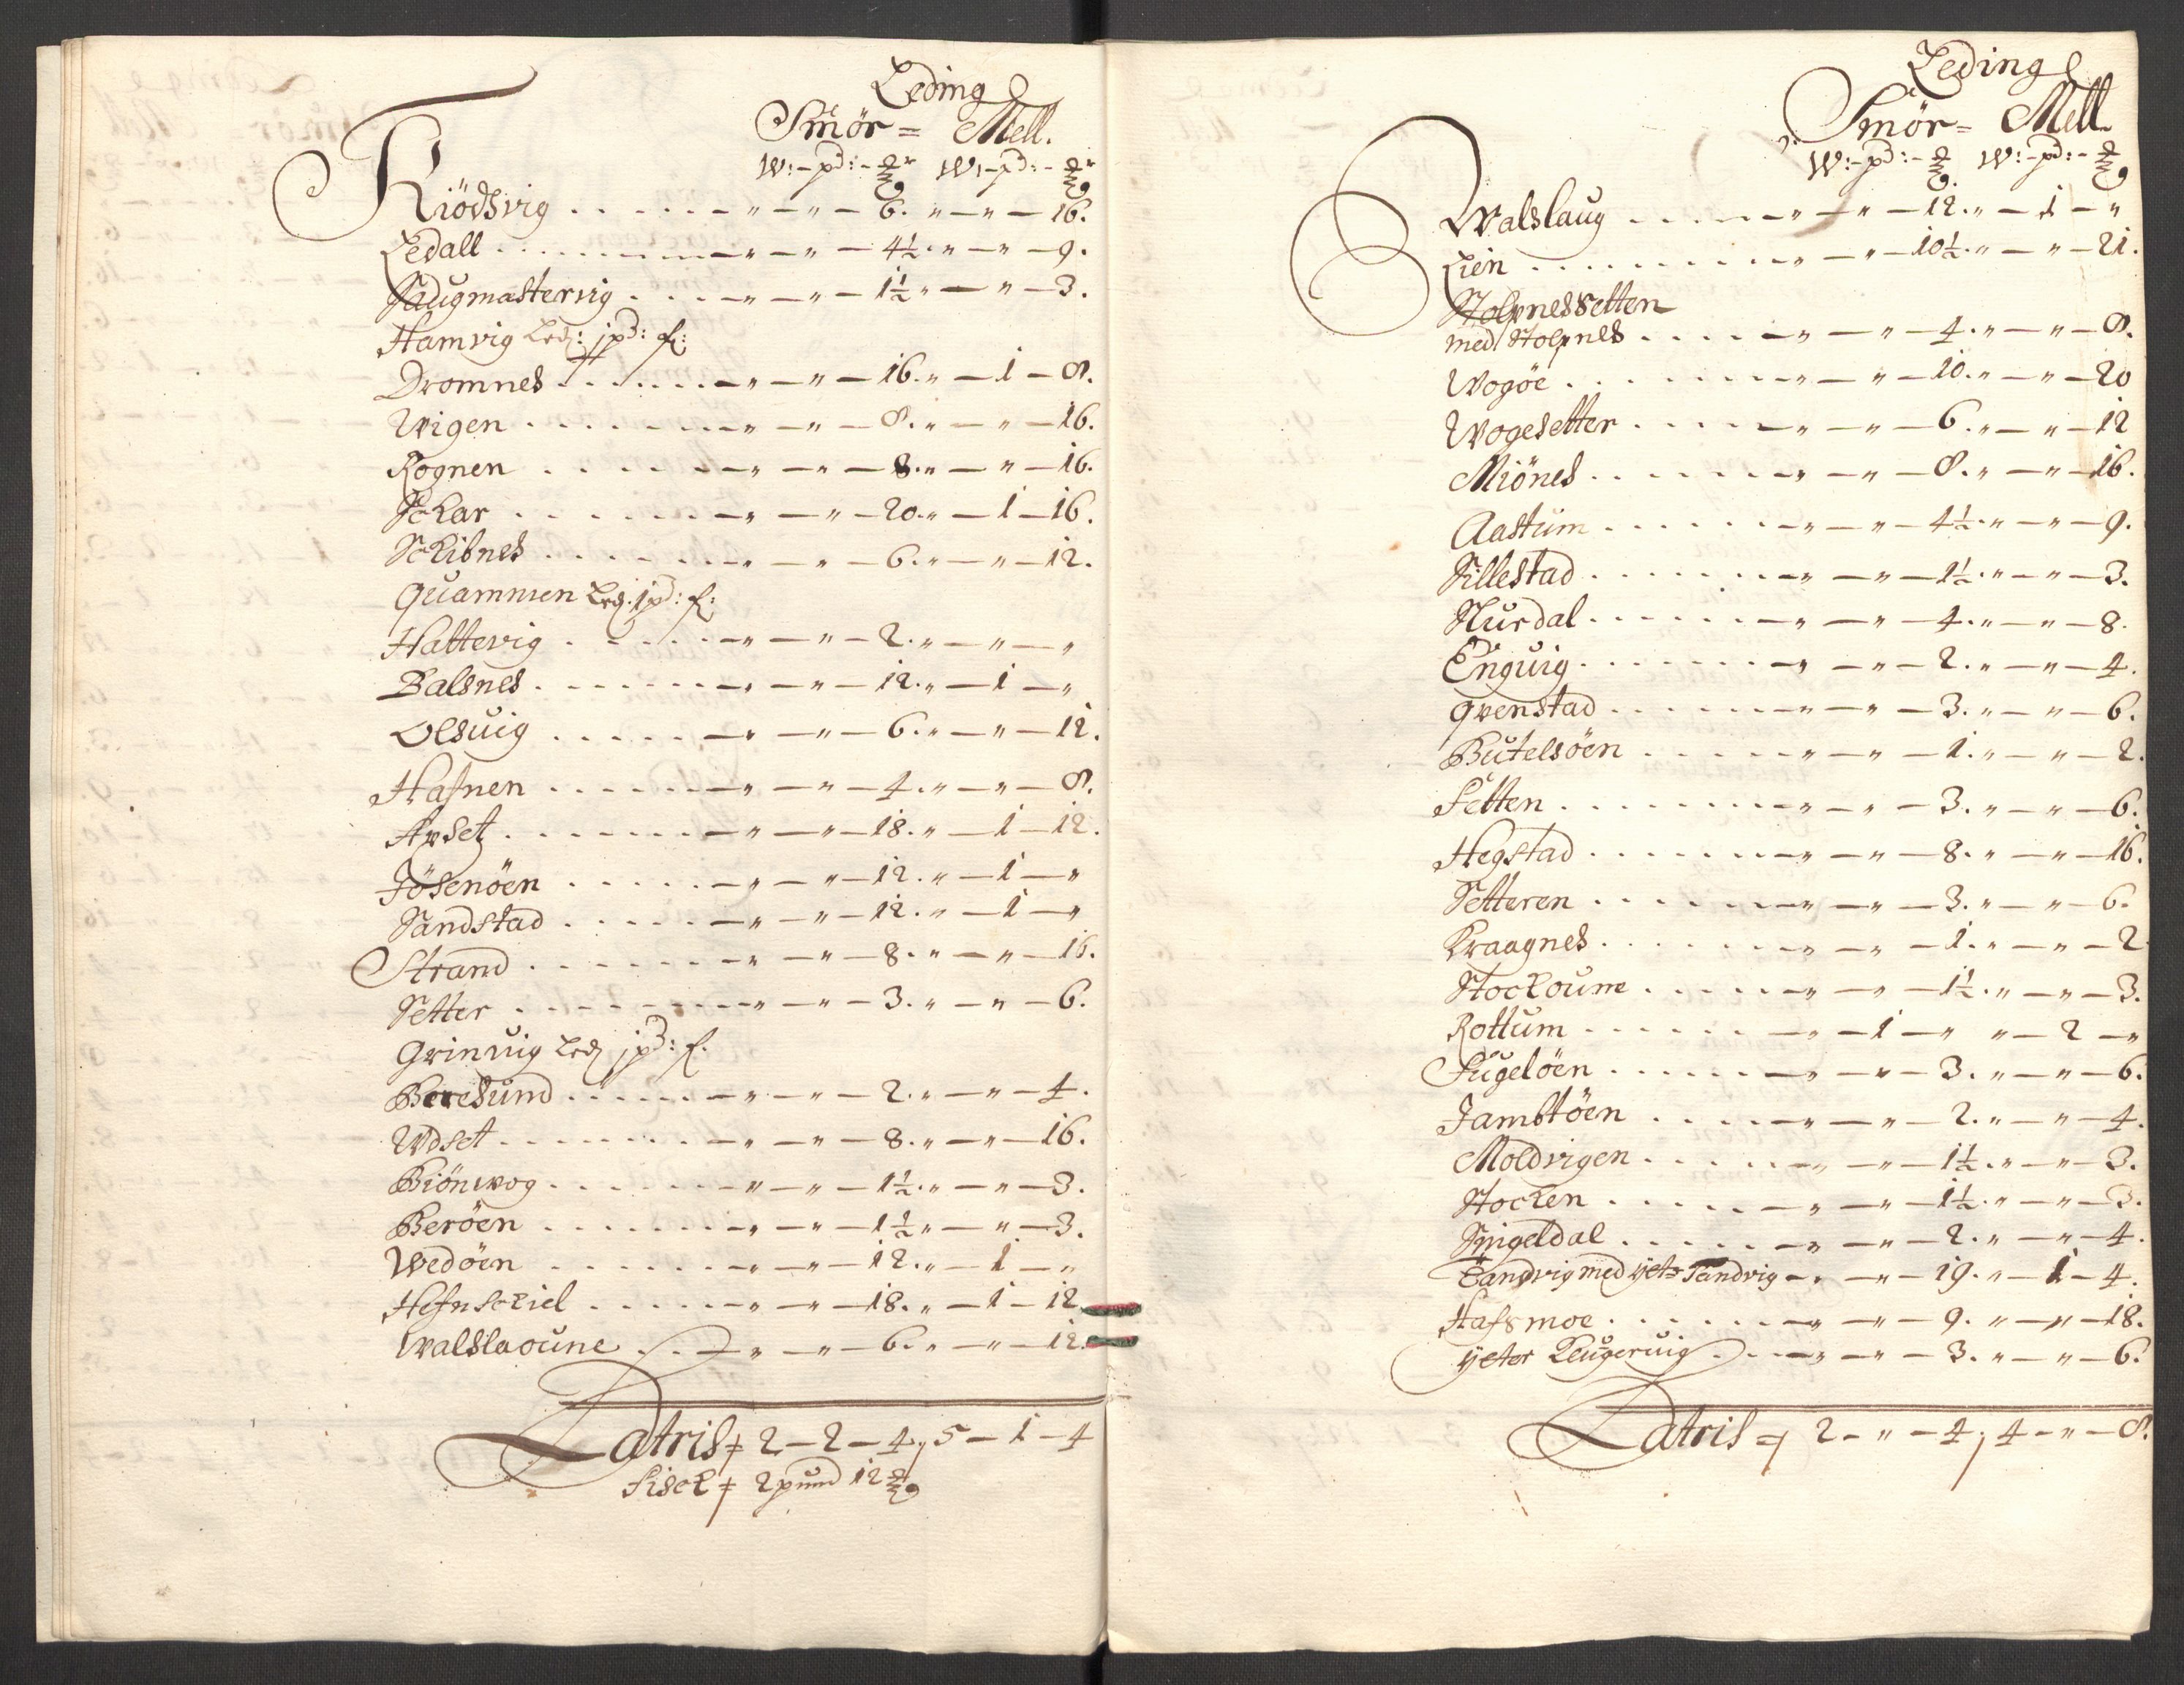 Leding
Smör = Mell.
W: - pd: - ℔r W: - pd: - ℔r
Kiödsvig . . . . . . - „ - „ - 6. „ - „ - 16.
Ledall . . . . . . - „ - „ - 4½. „ - „ - 9.
Haugmastervig . . . . - „ - „ - 1½ „ - „ - 3.
Hamvig Led: 1 pd: f:
Dromnes . . . . . . - „ - „ - 16. „ - 1 - 8.
Wigen . . . . . . - „ - „ - 8. „ - „ - 16.
Rognen . . . . . . - „ - „ - 8. „ - „ - 16.
Schar . . . . . . - „ - „ - 20. „ - 1 - 16.
Schibnes . . . . . . - „ - „ - 6. „ - „ - 12.
Quammen Led: 1 pd: f:
Hattevig . . . . . . - „ - „ - 2. „ - „ - „
Balsnes . . . . . . - „ - „ - 12. „ - 1 - „
Olsuig . . . . . . - „ - „ - 6. „ - „ - 12.
Hafnen . . . . . . - „ - „ - 4. „ - „ - 8.
Apset . . . . . . - „ - „ - 18. „ - 1 - 12.
Jösenöen . . . . . . - „ - „ - 12. „ - 1 - „
Sandstad . . . . . . - „ - „ - 12. „ - 1 - „
Strand . . . . . . - „ - „ - 8. „ - „ - 16.
Setter . . . . . . - „ - „ - 3. „ - „ - 6.
Grinuig Led 1 pd: f.
Beresund . . . . . . - „ - „ - 2. „ - „ - 4.
Wdset . . . . . . - „ - „ - 8. „ - „ - 16.
Biönwog . . . . . . - „ - „ - 1½. „ - „ - 3.
Beröen . . . . . . - „ - „ - 1½ „ - „ - 3.
Wedöen . . . . . . - „ - „ - 12. „ - 1 - „
Hefnskiel . . . . . . - „ - „ - 18. „ - 1 - 12
Walslaoune . . - „ - „ - 6. „ - „ - 12.
Latris 2 - 2 - 4, 5 - 1 - 4
fisck 2 pund 12 ℔
Leding
Smör = Mell.
W: - pd: - ℔ W: - pd: - ℔
Walslaug . . . . . - „ - „ - 12. „ - 1 - „
Lien . . . . . . - „ - „ - 10½. „ - „ - 21.
Stolpnessetten
med Stolpnes . . . . - „ - „ - 4. „ - „ - 8.
Wogöe . . . . . . - „ - „ - 10. „ - „ - 20
Wogesetter . . . . - „ - „ - 6. „ - „ - 12
Miönes . . . . . . - „ - „ - 8. „ - „ - 16.
Aastum . . . . . . - „ - „ - 4½. „ - „ - 9.
Sillestad . . . . . . - „ - „ - 1½. „ - „ - 3.
Slurdal . . . . . . - „ - „ - 4. „ - „ - 8.
Enguig . . . . . . - „ - „ - 2. „ - „ - 4.
Grenstad . . . . . . - „ - „ - 3. „ - „ - 6.
Butelsöen . . . . . - „ - „ - 1. „ - „ - 2.
Setten . . . . . . - „ - „ - 3. „ - „ - 6.
Hegstad . . . . . . - „ - „ - 8. „ - „ - 16.
Setteren . . . . . . - „ - „ - 3. „ - „ - 6.
Kraagnes . . . . . . - „ - „ - 1. „ - „ - 2
Stockoune . . . . . - „ - „ - 1½. „ - „ - 3.
Rottum . . . . . . - „ - 1 - „ „ - 2 - „
Fugelöen . . . . . . - „ - „ - 3. „ - „ - 6.
Jambtöen . . . . . . - „ - „ - 2. „ - „ - 4.
Moldvigen . . . . . - „ - „ - 1½. „ - „ - 3.
Stocken . . . . . . - „ - „ - 1½. „ - „ - 3.
Spigeldal . . . . . . - „ - „ - 2. „ - „ - 4.
Tandvig med yeter Tandvig - „ - „ - 19. „ - 1 - 4.
Hafsmoe . . . . . . - „ - „ - 9. „ - „ - 18.
yeter Leugeruig . . . - „ - „ - 3. „ - „ - 6.
Latris 2 - „ - 4, 4 - „ - 8.